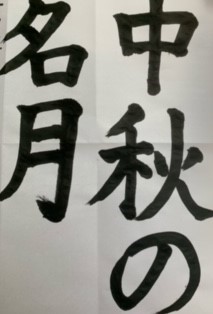 中秋の
名月